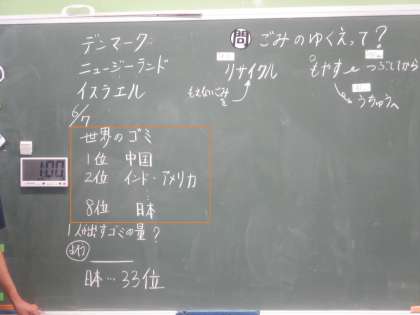 デンマーク
ニュージーランド
イスラエル
6/7
世界のゴミ
1位 中国
2位 インド・アメリカ
8位 日本
1人が出すゴミの量?
日本…33位
1:00
問 ごみのゆくえって?
リサイクル
もえないごみ
もやす
つぶしてから
うちゅうへ